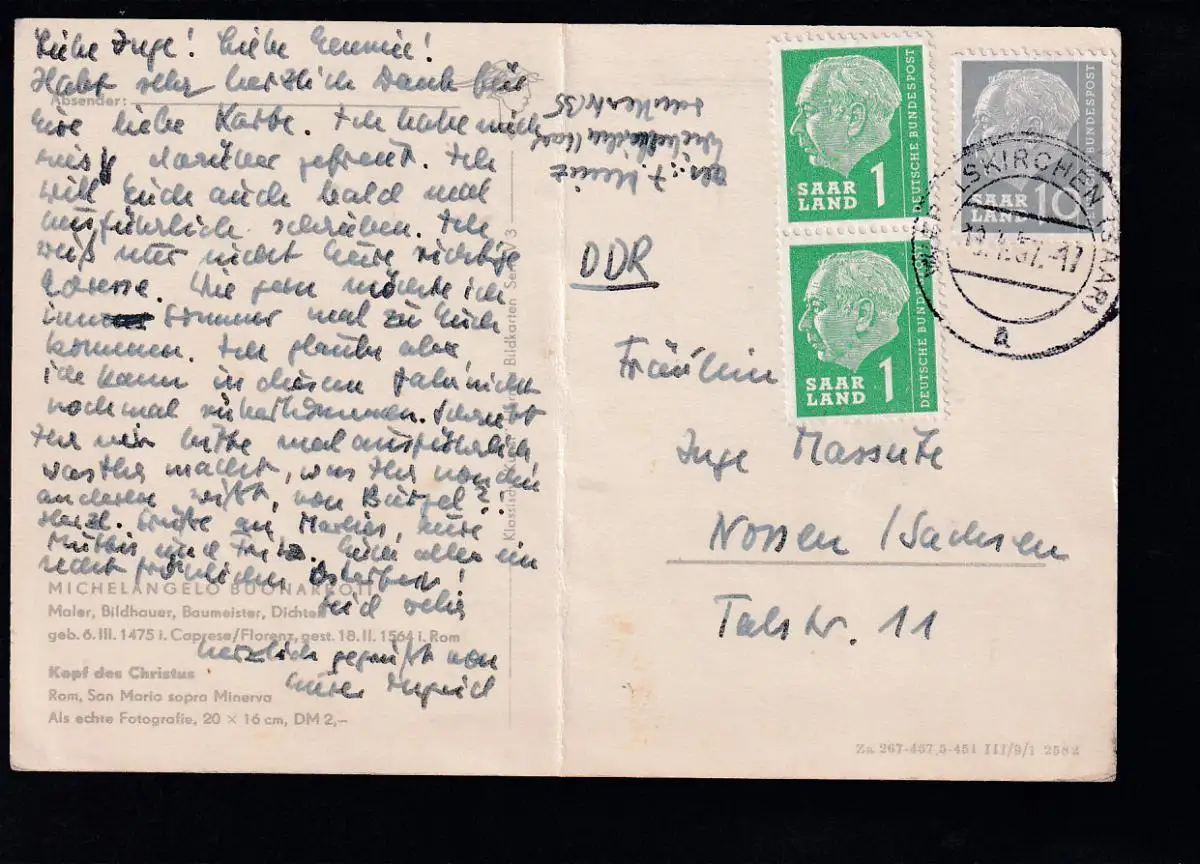 Liebe Inge! Liebe Gennie!
Habt sehr herzlich Dank für
Absender:
Eure liebe Karte. Ich habe mich
riesig darüber gefreut. Ich
will Euch auch bald mal
ausführlich schreiben. Ich
weiß nur nicht Eure richtige
Adresse. Wie gern möchte ich
im Sommer mal zu Euch
kommen. Ich glaube aber,
ich kann in diesem Jahr nicht
nochmal rüberkommen. Schreibt
Ihr mir bitte mal ausführlich,
was Ihr macht, was Ihr von den
anderen wißt, von Bürgel?
Herzl. Grüße an Marlies, Eure
Muttis und Fritz. Euch allen ein
recht fröhliches Osterfest!
MICHELANGELO BUONARROTI
Seid sehr
Maler, Bildhauer, Baumeister, Dichter
geb. 6. III. 1475 i. Caprese/Florenz, gest. 18. II. 1564 i. Rom
herzlich gegrüßt von
Kopf des Christus
Eurer Ingrid
Rom, San Maria sopra Minerva
Als echte Fotografie, 20 × 16 cm, DM 2,-
Bildkarten Serie V3
DDR
Fräulein
Inge Massute
Nossen /Sachsen
Talstr. 11
SAAR
LAND 1
DEUTSCHE BUNDESPOST
SAAR
LAND 1
DEUTSCHE BUND
SAAR
LAND 10
BUNDESPOST
SKIRCHEN (SAAR)
57.-17
a
Za 267-457,5-451 III/9/1 2582